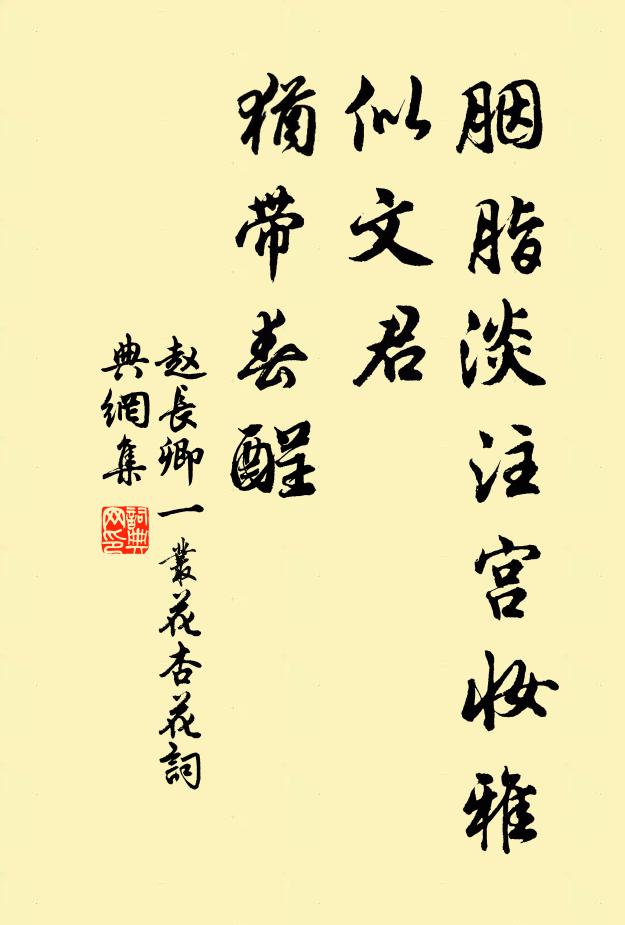 胭脂淡注宫妆雅
似文君
猶带春酲
赵長卿一叢花杏花詞
典網集
詞典網印